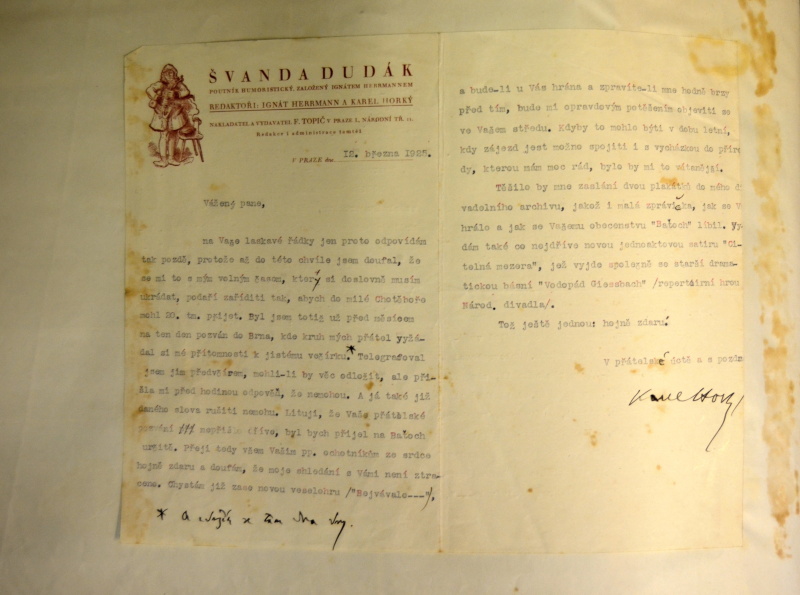 ŠVANDA DUDÁK
POUTNÍK HUMORISTICKÝ, ZALOŽENÝ IGNÁTEM HERRMANNEM
REDAKTOŘI: IGNÁT HERRMANN A KAREL HORKÝ
NAKLADATEL A VYDAVATEL F. TOPIČ V PRAZE I., NÁRODNÍ TŘ. 11.
Redakce i administrace tamtéž
V PRAZE dne 12. března 1925.
Vážený pane,
na Vaše laskavé řádky jen proto odpovídám
tak pozdě, protože až do této chvíle jsem doufal, že
se mi to s mým volným časem, který si doslovně musím
ukrádat, podaří zaříditi tak, abych do milé Chotěboře
mohl 22. tm. přijet. Byl jsem totiž už před měsícem
na ten den pozván do Brna, kde kruh mých přátel vyžá-
dal si mé přítomnosti k jistému večírku.* Telegrafoval
jsem jim předvčírem, mohli-li by věc odložit, ale při-
šla mi před hodinou odpověď, že nemohou. A já také již
daného slova rušiti nemohu. Lituji, že Vaše přátelské
pozvání nepřišlo dříve, byl bych přijel na Baťoch
určitě. Přeji tedy všem Vašim pp. ochotníkům ze srdce
hojně zdaru a doufám, že moje shledání s Vámi není ztra-
ceno. Chystám již zase novou veselohru /"Bejvávalo---"/,
* A
a bude-li u Vás hrána a zpravíte-li mne hodně brzy
před tím, bude mi opravdovým potěšením objeviti se
ve Vašem středu. Kdyby to mohlo býti v dobu letní,
kdy zájezd jest možno spojiti i s vycházkou do příro-
dy, kterou mám moc rád, bylo by mi to vítanější.
Těšilo by mne zaslání dvou plakátků do mého di-
vadelního archivu, jakož i malá zprávička, jak se V
hrálo a jak se Vašemu obecenstvu "Baťoch" líbil. Vy-
dám také co nejdříve novou jednoaktovou satiru "Ci-
telná mezera", jež vyjde společně se starší drama-
tickou básní "Vodopád Giessbach" /repertoirní hrou
Národ. divadla/.
Tož ještě jednou: hojně zdaru!
V přátelské úctě a s pozdra
Karel Horký